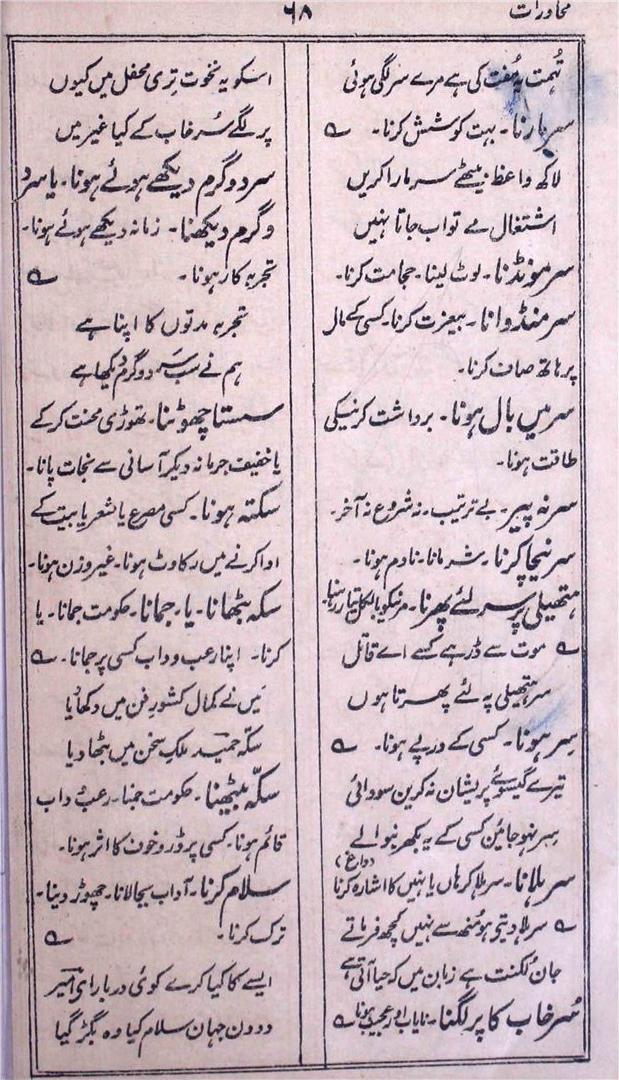 محاورات
۶۸
تُہمت یہ مُفت کی ہے مرے سر لگی ہوئی
سر مارنا۔ بہت کوشش کرنا۔ ؎
لاکھ واعظ بیٹھے سر مارا کریں
اشتغال مے تو اب جاتا نہیں
سر مونڈنا۔ لوٹ لینا۔ حجامت کرنا۔
سر منڈوانا۔ بیعزت کرنا۔ کسی کے مال
پر ہاتھ صاف کرنا۔
سر میں بال ہونا۔ برداشت کرنیکی
طاقت ہونا۔
سر نہ پیر۔ بے ترتیب۔ نہ شروع نہ آخر۔
سر نیچا کرنا۔ شرمانا۔ نادم ہونا۔
ہتھیلی پر سر لئے پھرنا۔ مرنیکو بالکل تیار رہنا۔
؎ موت سے ڈر ہے کسے اے قاتل
سر ہتھیلی پہ لئے پھرتا ہوں
سِر ہونا۔ کسی کے درپے ہونا۔ ؎
تیرے گیسوئے پریشان نہ کریں سودائی
سر نہو جائیں کسی کے یہ بکھرنیوالے
(داغ)
سر ہلانا۔ سر ہلا کر ہاں یا نہیں کا اشارہ کرنا
؎ سر ہلا دیتی ہو مُنھ سے نہیں کچھ فرماتے
جان لُکنت ہے زبان میں کہ حیا آتی ہے
سُرخاب کا پر لگنا۔ نایاب اور عجیب ہونا ؎
اسکو یہ نخوت تِری محفل میں کیوں
پر لگے سُرخاب کے کیا غیر میں
سرد و گرم دیکھے ہوئے ہونا۔ یا سرد
و گرم دیکھنا۔ زمانہ دیکھے ہوئے ہونا۔
تجربہ کار ہونا۔ ؎
تجربہ مدتوں کا اپنا ہے
ہم نے سب سرد و گرم دیکھا ہے
سستا چھوٹنا۔ تھوڑی محنت کر کے
یا خفیف جرمانہ دیکر آسانی سے نجات پانا۔
سکتہ ہونا۔ کسی مصرع یا شعر یا بیت کے
ادا کرنے میں رکاوٹ ہونا۔ غیر وزن ہونا۔
سکہ بٹھانا۔ یا۔ جمانا۔ حکومت جمانا۔ یا
کرنا۔ اپنا رعب و داب کسی پر جمانا۔ ؎
میں نے کمال کشورِ فن میں دکھا دیا
سکہ حمید ملکِ سخن میں بٹھا دیا
سکّہ بیٹھنا۔ حکومت جمنا۔ رعب داب
قائم ہونا۔ کسی پر ڈر و خوف کا اثر ہونا۔
سلام کرنا۔ آداب بجالانا۔ چھوڑ دینا۔
ترک کرنا۔ ؎
ایسے کا کیا کرے کوئی دربار ای امیر
دو دن جہان سلام کیا وہ بگڑ گیا